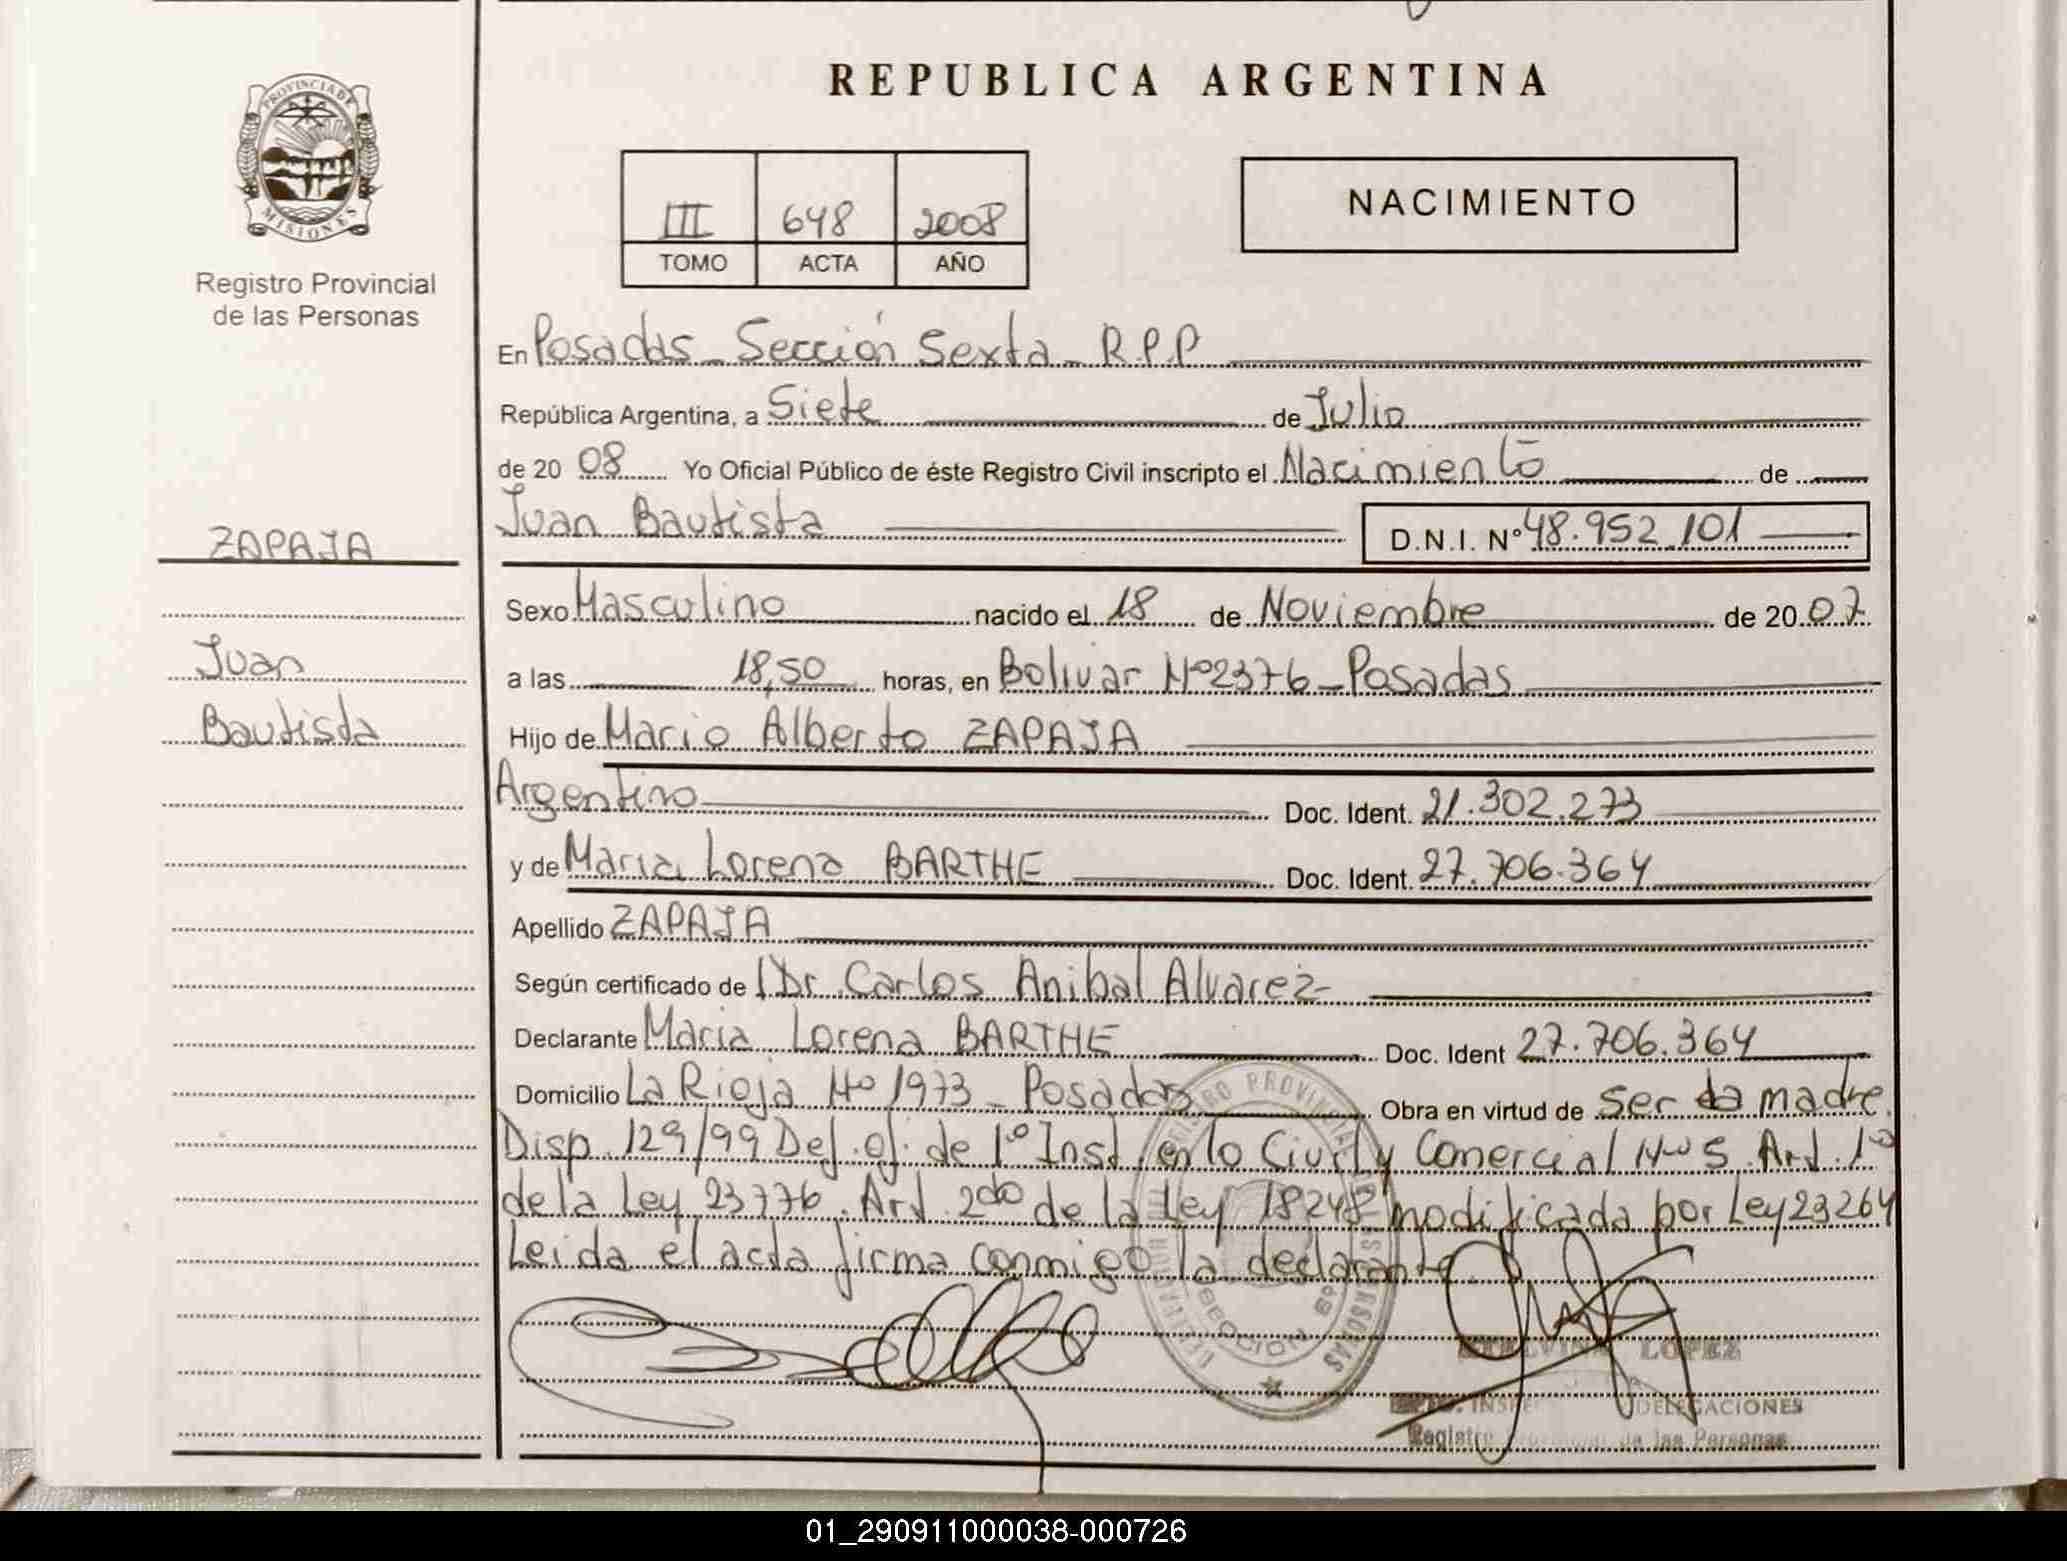 REPUBLICA ARGENTINA
PROVINCIA DE
MISIONES
Registro Provincial
de las Personas
III 648 2008
TOMO ACTA AÑO
NACIMIENTO
En Posadas - Sección Sexta - R.P.P
República Argentina, a Siete de Julio
de 20 08 Yo Oficial Público de éste Registro Civil inscripto el Nacimiento de
Juan Bautista D.N.I. Nº 48.952.101
ZAPAJA
Juan
Bautista
Sexo Masculino nacido el 18 de Noviembre de 20 07
a las 18,50 horas, en Bolivar Nº 2376 - Posadas
Hijo de Mario Alberto ZAPAJA
Argentino Doc. Ident. 21.302.273
y de Maria Lorena BARTHE Doc. Ident. 27.706.364
Apellido ZAPAJA
Según certificado de Dr. Carlos Anibal Alvarez
Declarante Maria Lorena BARTHE Doc. Ident 27.706.364
Domicilio La Rioja Nº 1973 - Posadas Obra en virtud de ser la madre.
Disp. 129/99 Def. of. de 1º Inst. en lo Civil y Comercial Nº 5. Art. 1º
de la Ley 23776. Art. 2do de la Ley 18248 modificada por Ley 23264
Leida el acta firma conmigo la declarante.
SECCION 6º
LOPEZ
DELEGACIONES
Registro Provincial de las Personas
01_290911000038-000726